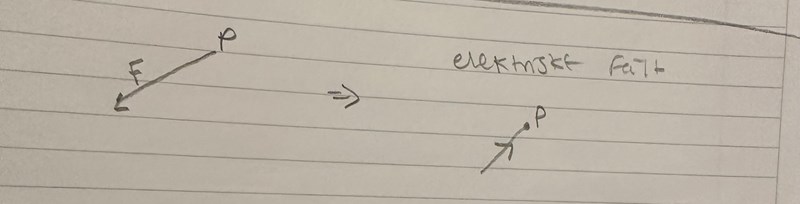 P
F
elektriskt fält
⇒
P